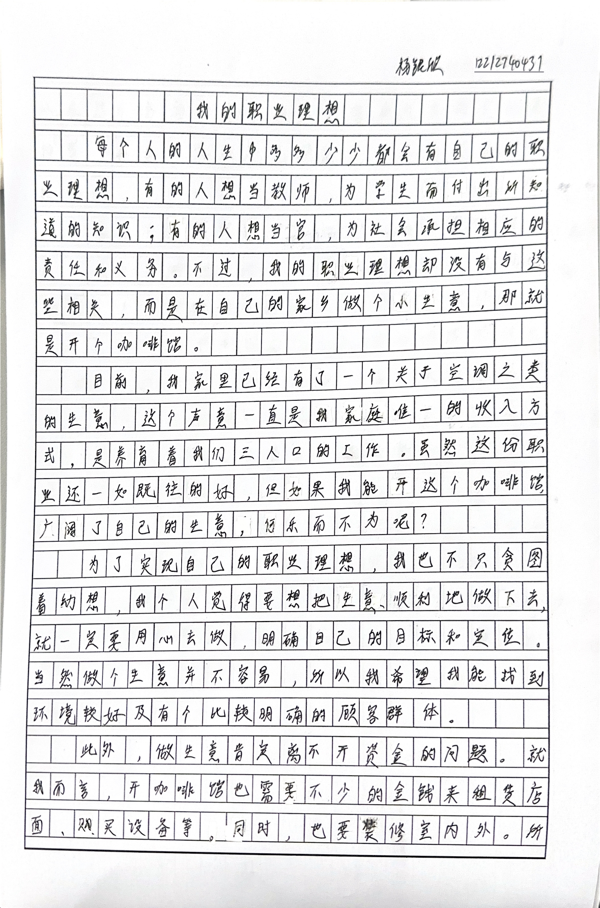 杨锟欣 1212740437
我的职业理想
每个人的人生中多多少少都会有自己的职
业理想，有的人想当教师，为学生而付出所知
道的知识；有的人想当官，为社会承担相应的
责任和义务。不过，我的职业理想却没有与这
些相关，而是在自己的家乡做个小生意，那就
是开个咖啡馆。
目前，我家里已经有了一个关于空调之类
的生意，这个声意一直是我家庭唯一的收入方
式，是养育着我们三人口的工作。虽然这份职
业还一如既往的好，但如果我能开这个咖啡馆
广阔了自己的生意，何乐而不为呢？
为了实现自己的职业理想，我也不只贪图
着幼想，我个人觉得要想把生意、顺利地做下去，
就一定要用心去做，明确自己的目标和定位。
当然做个生意并不容易，所以我希望我能找到
环境较好及有个比较明确的顾客群体。
此外，做生意肯定离不开资金的问题。就
我而言，开咖啡馆也需要不少的金钱来组货店
面、购买设备等。同时，也要装修室内外。所